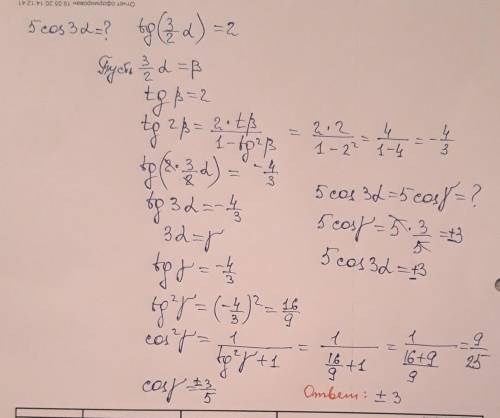 Отчет сформирован 19.05.20 14:12:41
5cos3α=? tg(3/2 α)=2
Пусть 3/2 α=β
tgβ=2
tg2β= 2·tβ / 1-tg²β = 2·2 / 1-2² = 4 / 1-4 = -4/3
tg(2·3/2 α) = -4/3
tg3α=-4/3
3α=γ
tgγ=-4/3
tg²γ=(-4/3)²=16/9
cos²γ= 1 / tg²γ+1 = 1 / 16/9+1 = 1 / (16+9)/9 = 9/25
cosγ=±3/5
5cos3α=5cosγ=?
5cosγ=5·3/5=±3
5cos3α=±3
Ответ: ±3